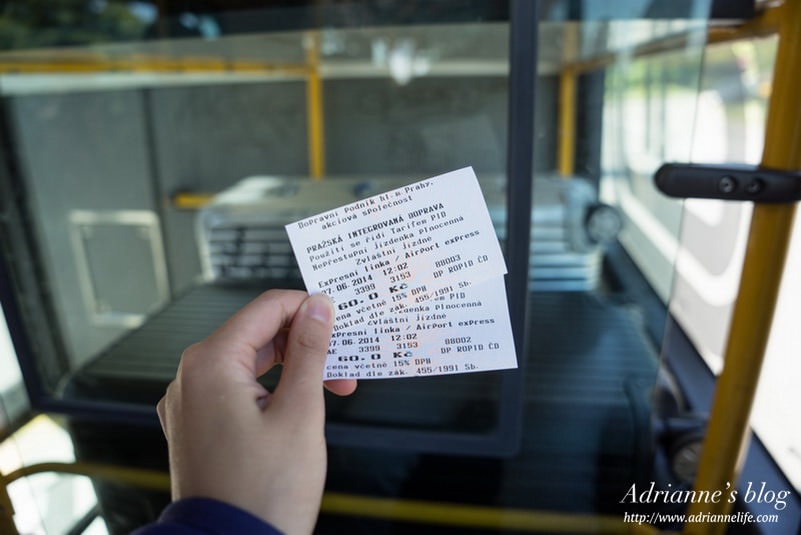 Dopravní Podnik hl.m Prahy.
akciová společnost
PRAŽSKÁ INTEGROVANÁ DOPRAVA
Použití se řídí Tarifem PID
Nepřestupní jízdenka Plnocenná
Zvláštní jízdné
Expresní linka / AirPort exPress
07.06.2014 12:02 B8003
3399 3153 DP ROPID ČD
60.0 Kč
cena včetně 15% DPH
Doklad dle zák. 455/1991 Sb.
PID
jízdenka Plnocenná
Zvláštní jízdné
Expresní linka / AirPort exPress
07.06.2014 12:02 B8002
AE 3399 3153 DP ROPID ČD
60.0 Kč
cena včetně 15% DPH
Doklad dle zák. 455/1991 Sb.
Adrianne's blog
http://www.adriannelife.com